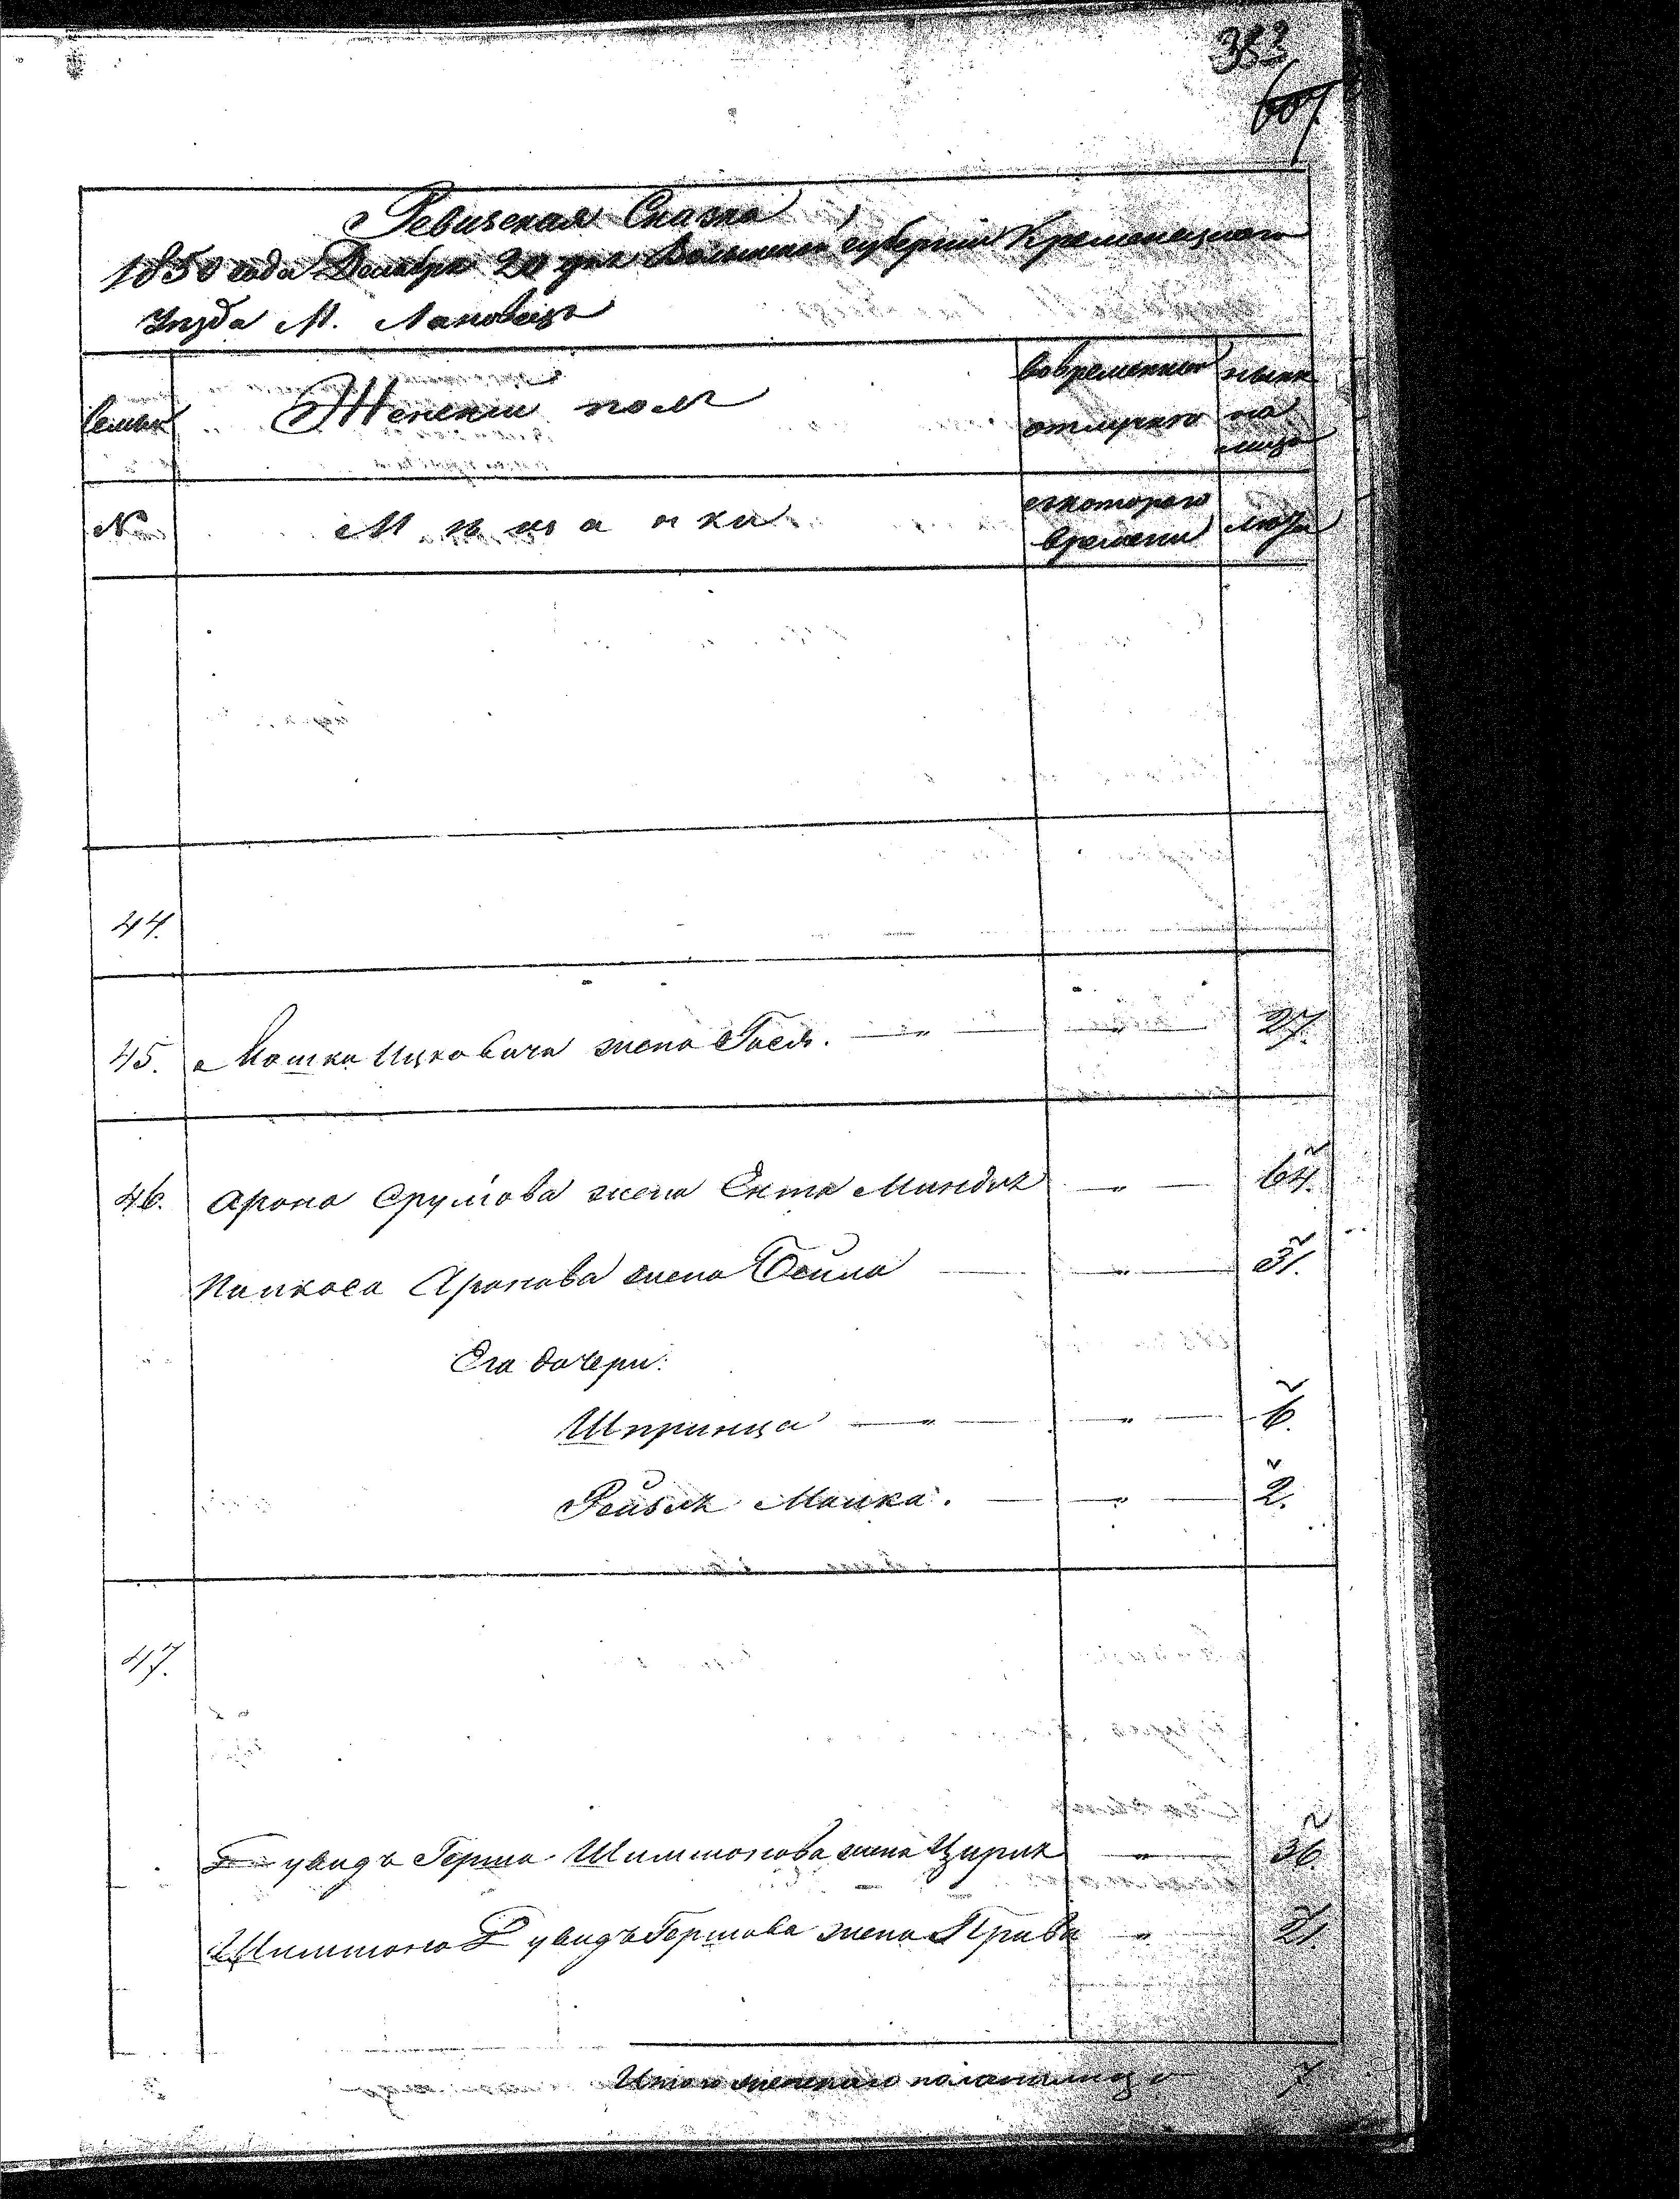 383
607
Ревизская Сказка
1850 года Декабря 20 дня Волынской губернии Кременецкаго
Уезда М. Лановец
Семьи
Женский пол
Вовременной
отлучке
ныне
на
лицо
№
Мещанки
с котораго
времени
лета
44.
45. Мошка Ицковича жена Гася. — " — " — 27.
46. Арона Срулова жена Ента Миндля — " — 64.
Пинкоса Аронова жена Бейла — " — 31.
Его дочери:
Шпринца — " — " — 6.
Рейзля Малка. — " — 2.
47.
Дувидъ Герша Шимшонова жена Цирля — " — 36
Шимшона Дувидъ Гершова жена Прива " 21.
Итого женскаго пола налицо 7